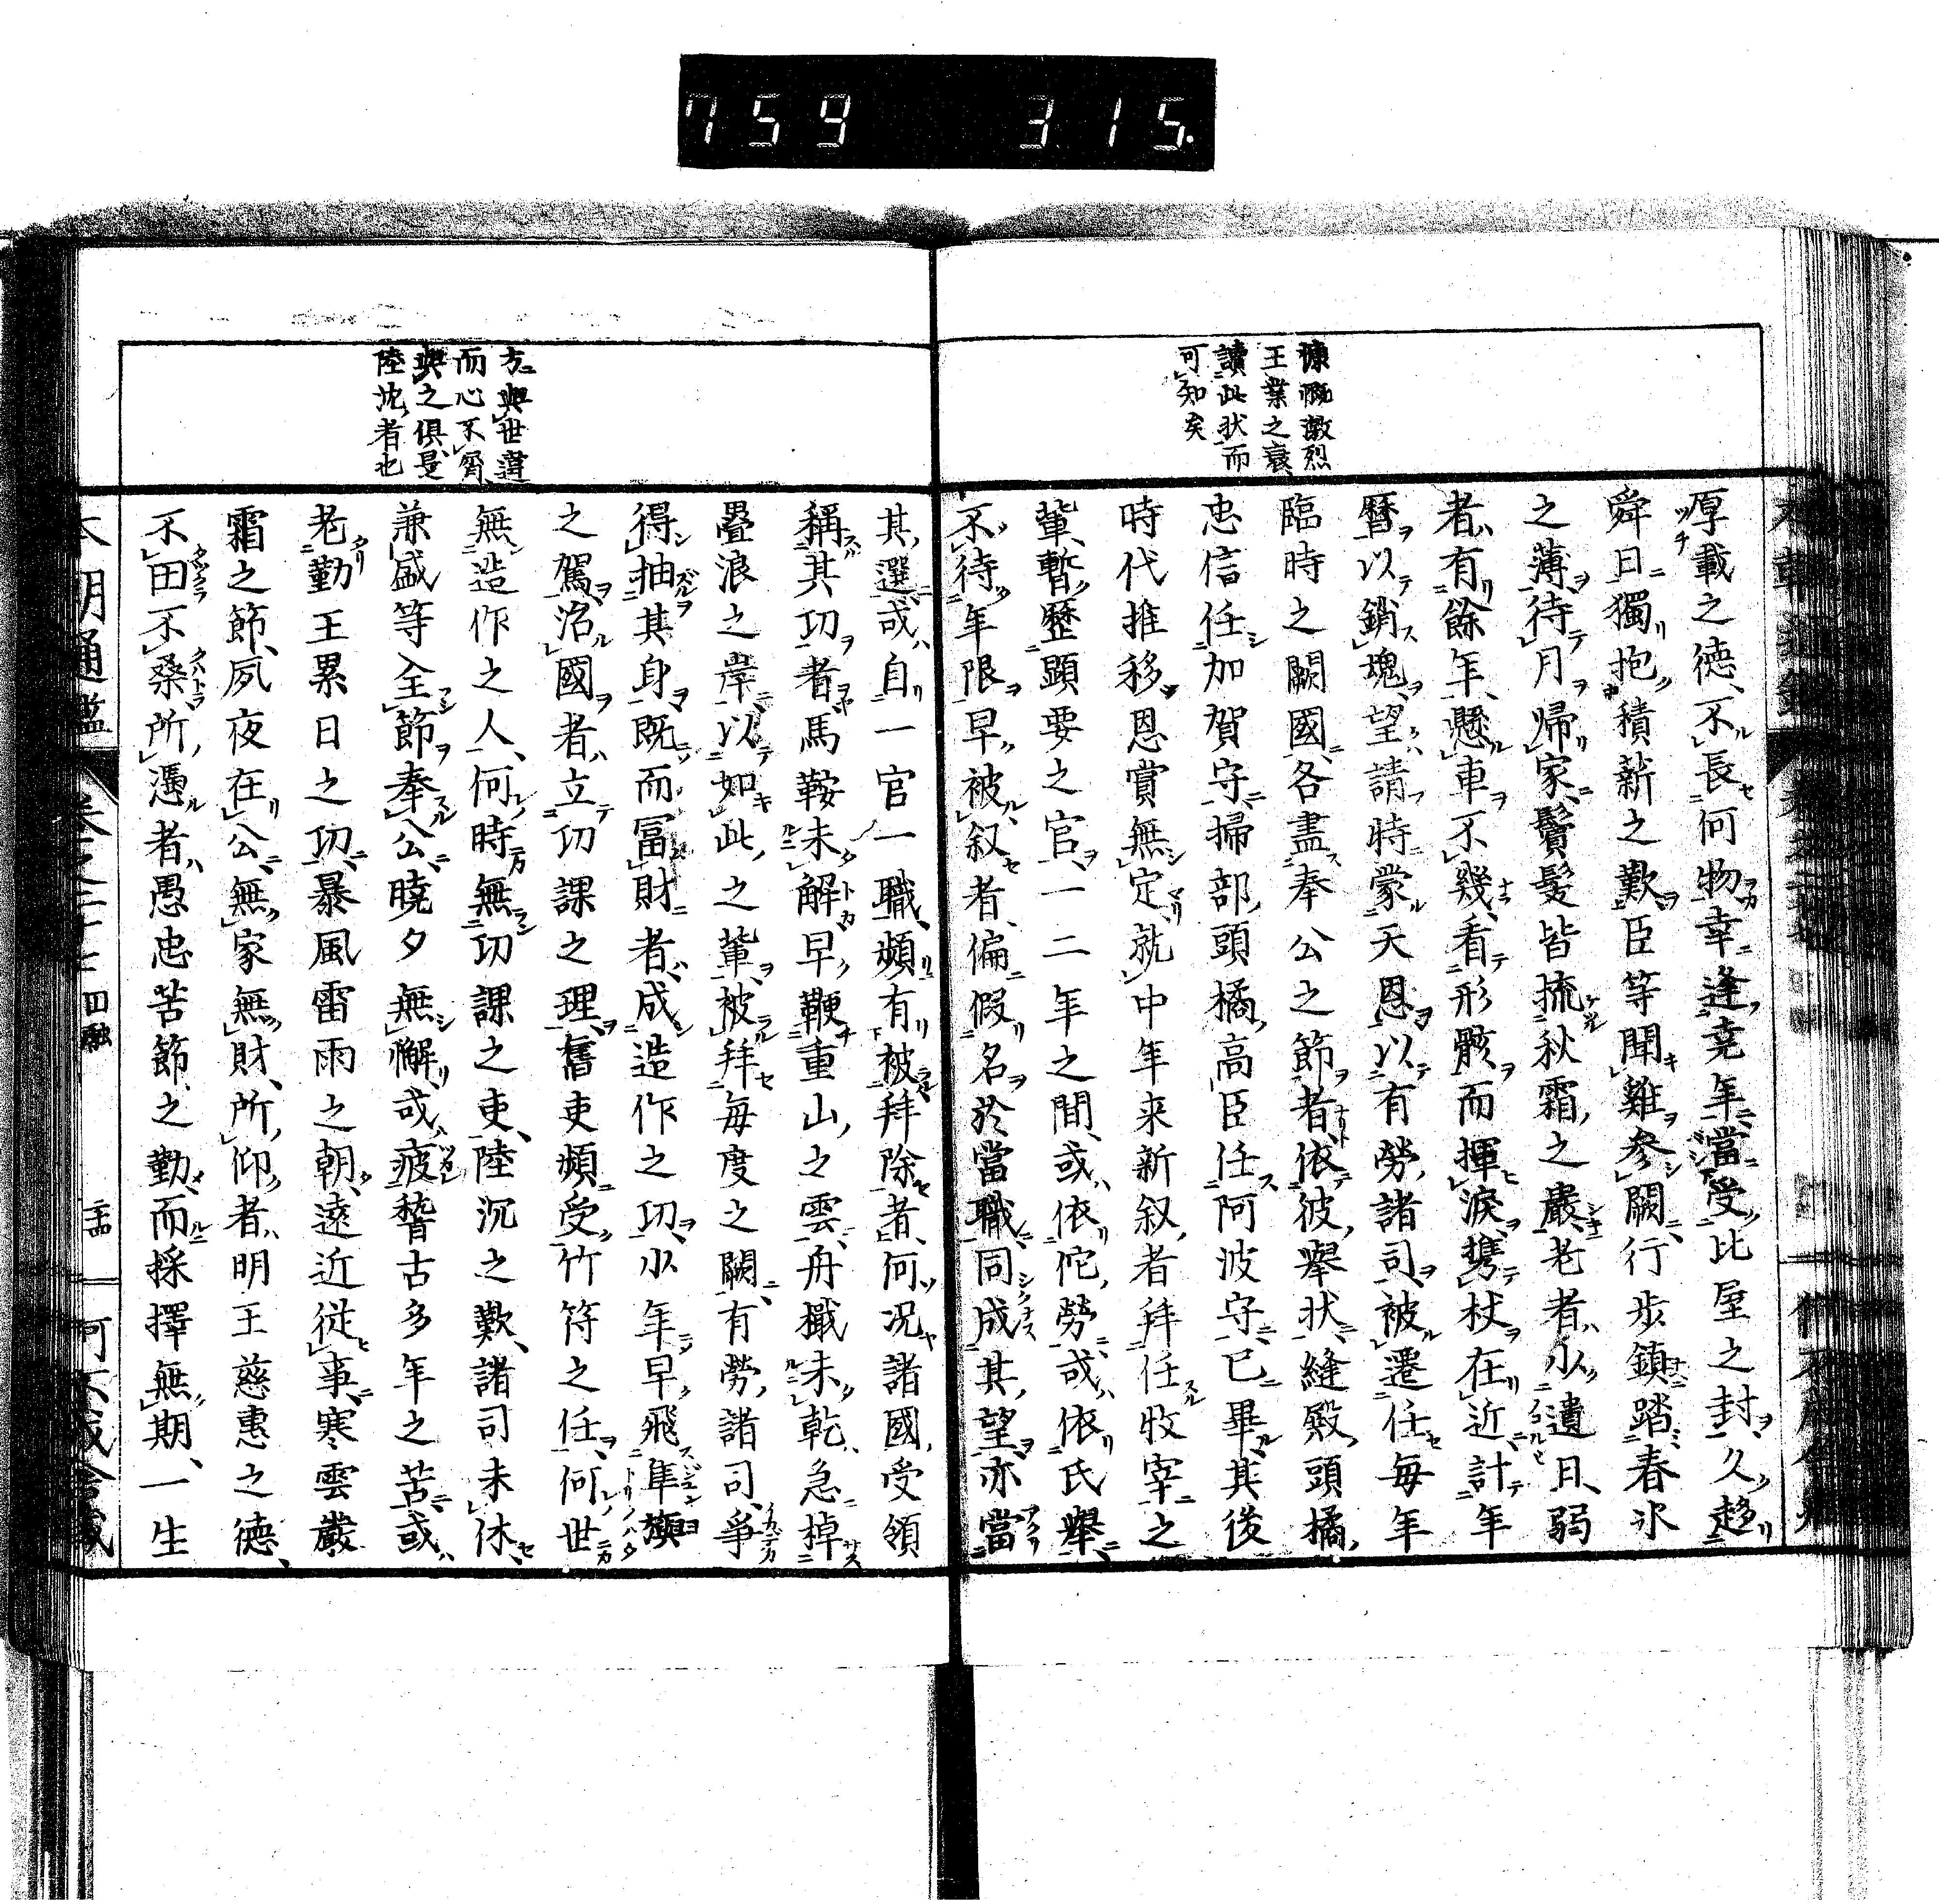 759 315.
慷慨激烈
王業之衰
讀此状而
可知矣
厚載之德、不長何物幸逢尭年當受比屋之封、久趍
舜日獨抱積薪之歎臣等聞雞参闕、行歩鎮踏春氷
之薄待月帰家、鬢髪皆挽秋霜之嚴老者少遺日、弱
者有餘年、懸車不幾、看形骸而揮淚、携杖在近計年
暦以銷魂、望請時蒙天恩以有勞諸司、被遷任毎年
臨時之闕國、各盡奉公之節者、依彼擧状、縫殿頭橘
忠信任加賀守、掃部頭橘高臣任阿波守、已畢其後
時代推移恩賞無定、就中年来新叙者拜任牧宰之
輩、暫歷顕要之官、一二年之間、或依佗勞、或依氏擧、
不待年限早被叙者、偏假名於當職、同成其望亦當
方與世違
而心不屑
與之倶是
陸沈者也
其選或自一官一職、頻有被拜除者、何况諸國受領
稱其功者馬鞍未解早鞭重山之雲、舟檝未乾、急棹
疊浪之岸以如此之輩、被拜毎度之闕、有勞諸司、爭
得抽其身、既而冨財者、成造作之功、少年早飛隼旟
之駕、治國者、立功課之理、舊吏頻受竹符之任、何世
無造作之人、何時無功課之吏、陸沉之歎、諸司未休、
兼盛等全節奉公、暁夕無懈、或疲稽古多年之苦、或
老勤王累日之功、暴風雷雨之朝、遠近従事、寒雲嚴
霜之節、夙夜在公、無家無財、所仰者、明王慈惠之德、
不田不桑所憑者、愚忠苦節之勤、而採擇無期、一生
本朝通鑑
卷之二十七
四融